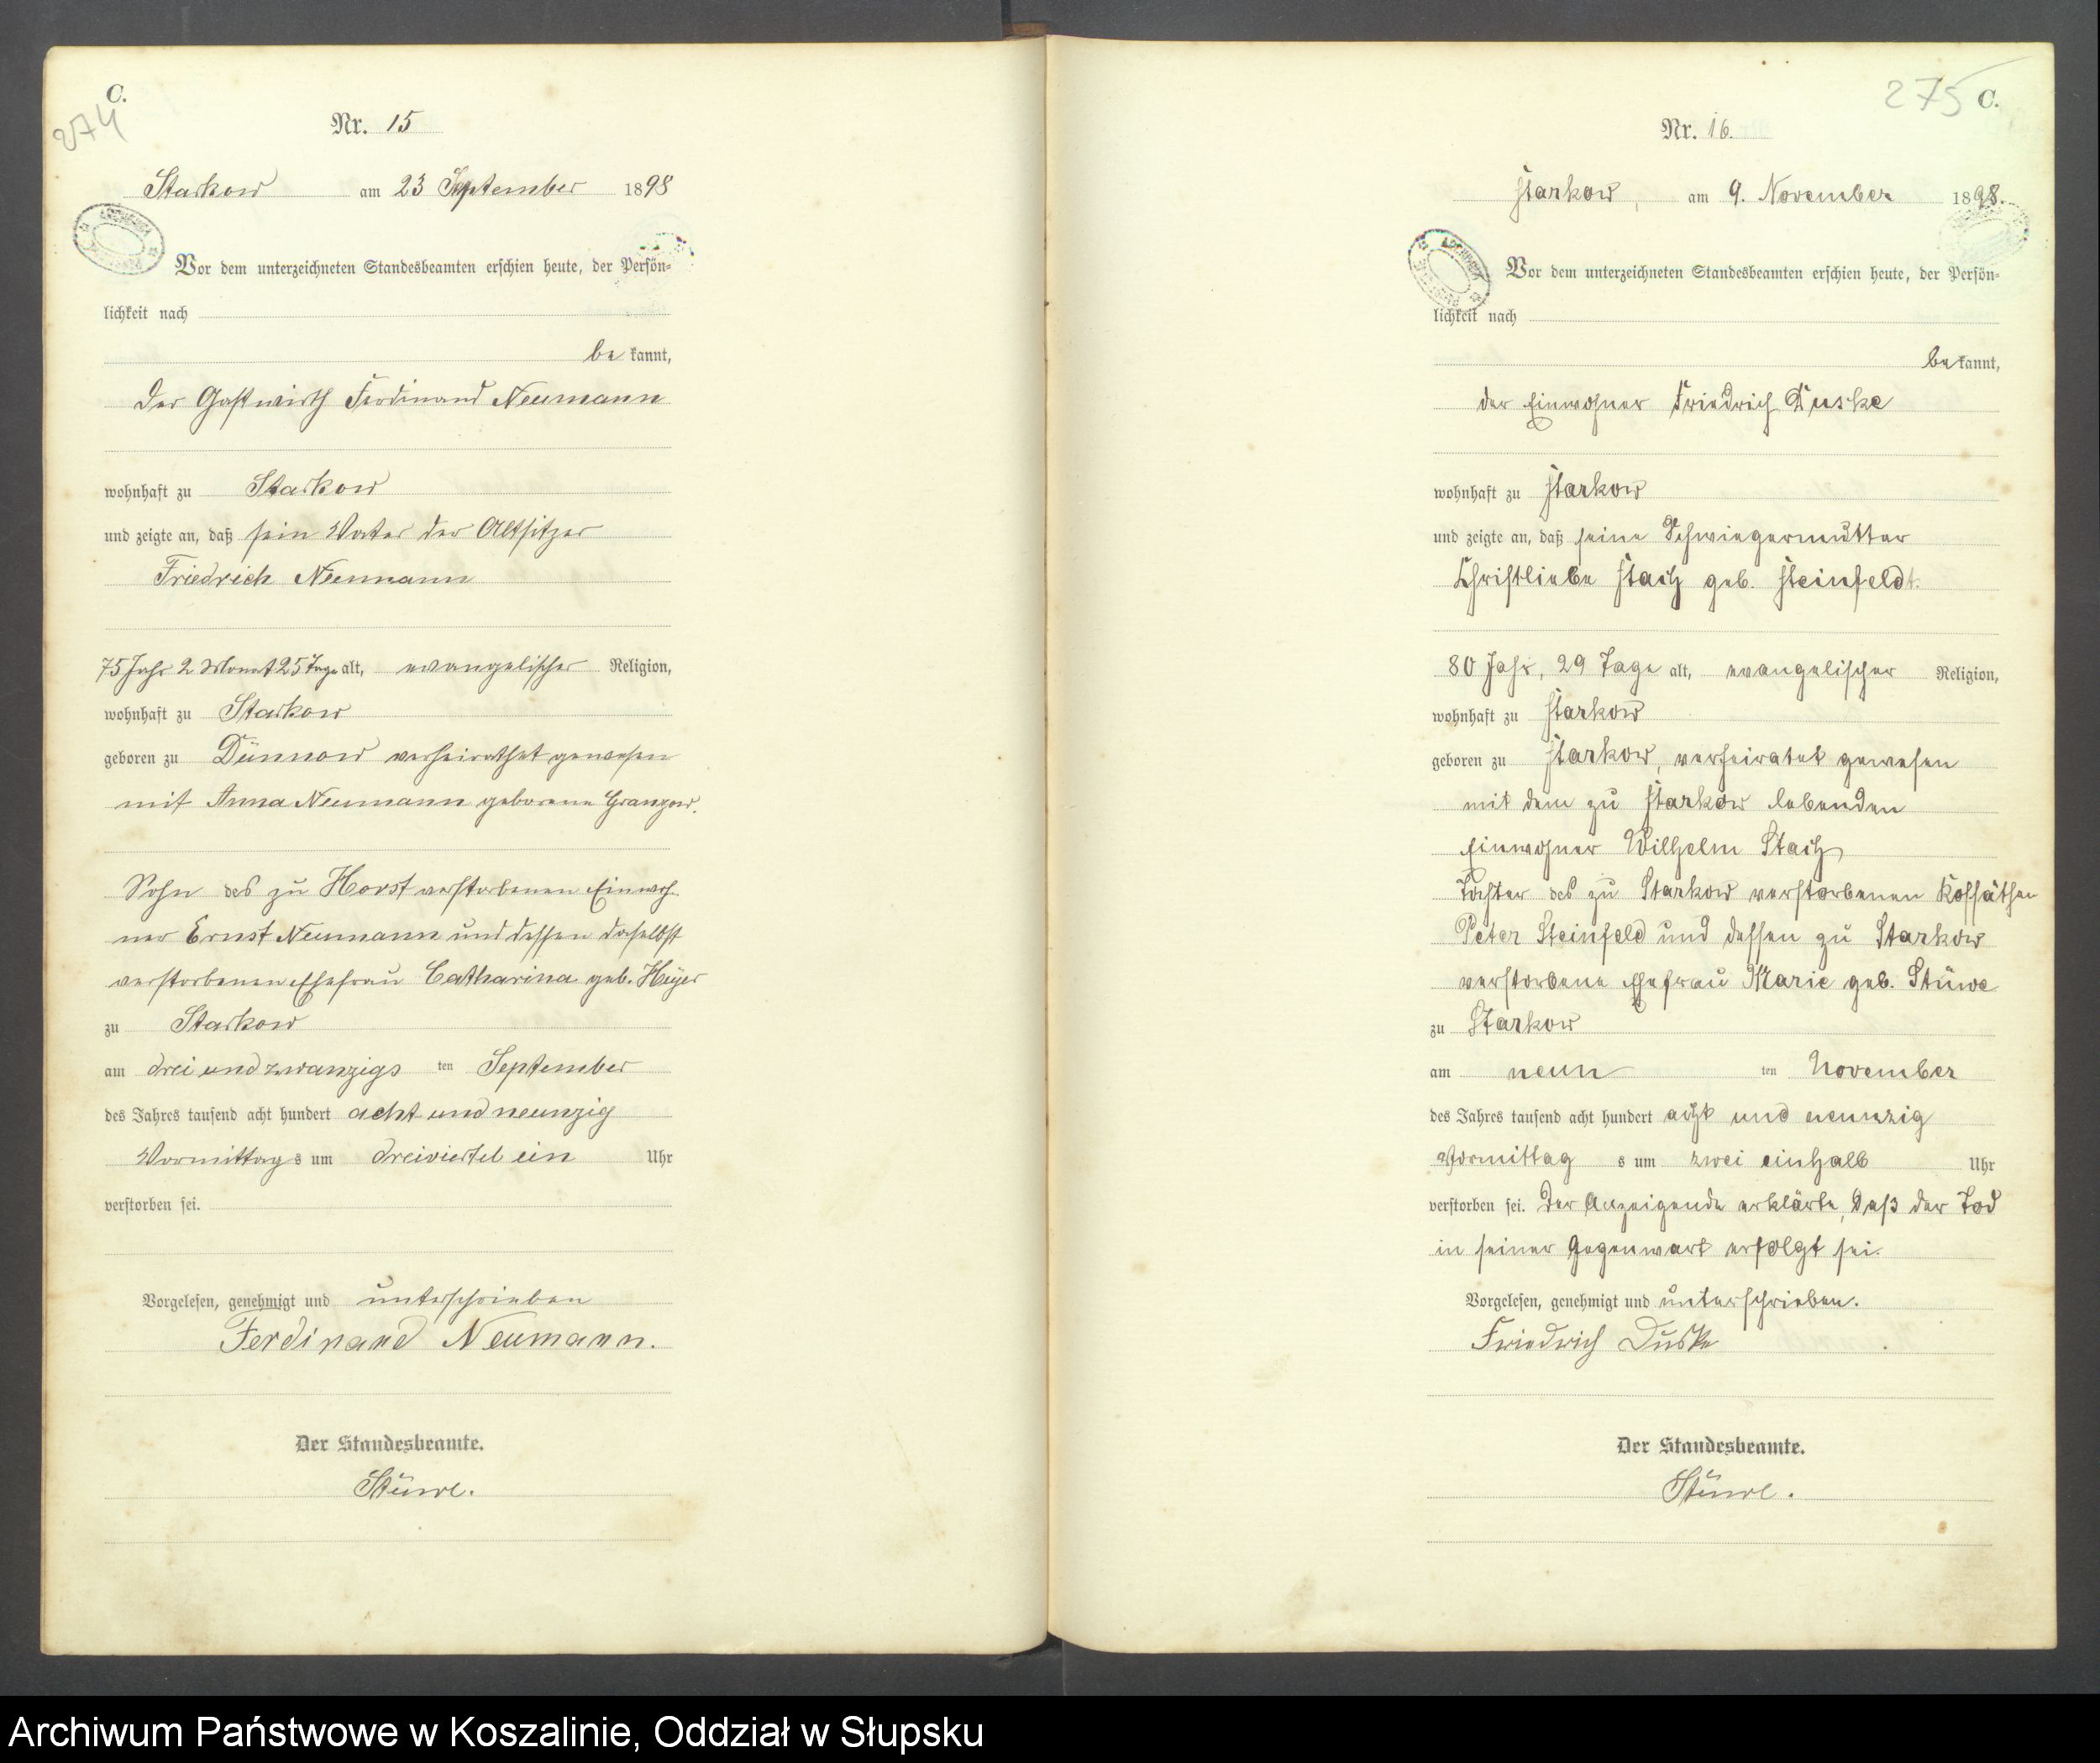 C.
274
Nr. 15
Starkow am 23 September 1898
Vor dem unterzeichneten Standesbeamten erschien heute, der Persön=
lichkeit nach
be kannt,
der Gastwirth Ferdinand Neumann
wohnhaft zu Starkow
und zeigte an, daß sein Vater der Altsitzer
Friedrich Neumann
75 Jahr 2 Monat 25 Tage alt, evangelischer Religion,
wohnhaft zu Starkow
geboren zu Dünnow verheirathet gewesen
mit Anna Neumann geborene Granzow.
Sohn des zu Horst verstorbenen Einwoh
ner Ernst Neumann und dessen daselbst
verstorbenen Ehefrau Catharina geb. Heyer
zu Starkow
am drei und zwanzigs ten September
des Jahres tausend acht hundert acht und neunzig
Vormittag s um dreiviertel ein Uhr
verstorben sei.
Vorgelesen, genehmigt und unterschrieben
Ferdinand Neumann.
Der Standesbeamte.
Stüwe.
275 C.
Nr. 16.
Starkow, am 9. November 1898.
Vor dem unterzeichneten Standesbeamten erschien heute, der Persön=
lichkeit nach
be kannt,
der Einwohner Friedrich Duske
wohnhaft zu Starkow
und zeigte an, daß seine Schwiegermutter
Christliebe Stach geb. Steinfeldt.
80 Jahr, 29 Tage alt, evangelischer Religion,
wohnhaft zu Starkow
geboren zu Starkow, verheiratet gewesen
mit dem zu Starkow lebenden
Einwohner Wilhelm Stach
Tochter des zu Starkow verstorbenen Kossäthen
Peter Steinfeld und dessen zu Starkow
verstorbene Ehefrau Marie geb. Stüwe
zu Starkow
am neun ten November
des Jahres tausend acht hundert acht und neunzig
Vormittag s um zwei einhalb Uhr
verstorben sei. Der Anzeigende erklärte, daß der Tod
in seiner Gegenwart erfolgt sei.
Vorgelesen, genehmigt und unterschrieben.
Friedrich Duske
Der Standesbeamte.
Stüwe.
Archiwum Państwowe w Koszalinie, Oddział w Słupsku